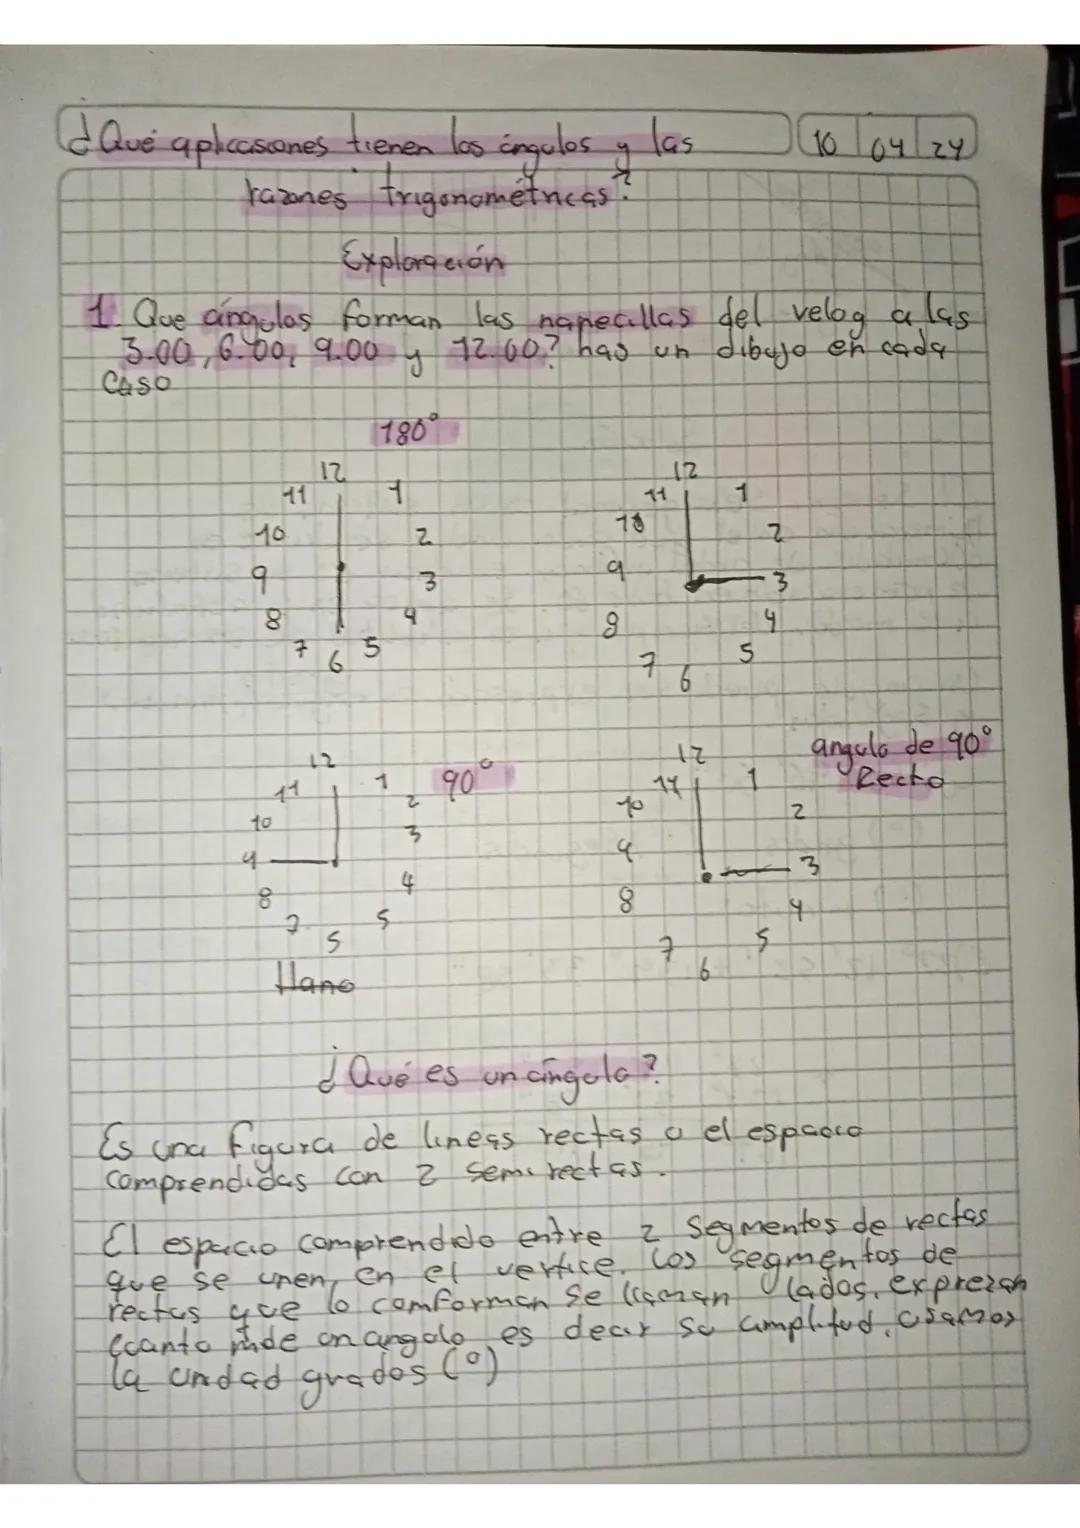 ¿Qué aplicasiones tienen los ángulos y las
10 04 24
razones trigonométricas?
Exploración
1. Que ángulos forman las manecillas del relog a las
3.00, 6.00, 9.00 y 12.00? has un dibujo en cada
caso
180°
12
11 1
10 2
9 3
8 4
7 6 5
12
11 1
10 2
9 3
8 4
7 6 5
12
11 1 90°
10 2
9 3
8 4
7 5 5
llano
12 angulo de 90°
11 1 Recto
10 2
9 3
8 4
7 6 5
¿Qué es un ángulo?
Es una figura de lineas rectas o el espacio
comprendidas con 2 semirectas.
El espacio comprendido entre 2 segmentos de rectas
que se unen, en el vertice. los segmentos de
rectas que lo comforman se llaman lados. exprezan
cuanto mide un angulo es decir su amplitud. usamos
la unidad grados (°)